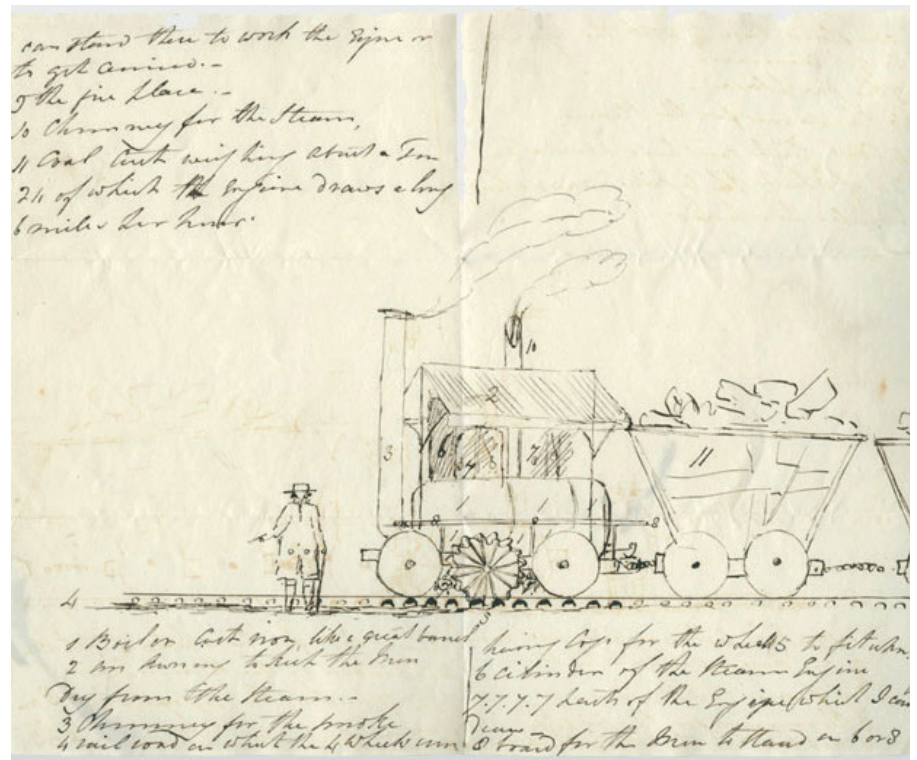 can stand there to work the Engine or
to get
9 the fire place.-
10 Chimney for the Steam,
11 Coal Cart weighing about a Ton
24 of which the Engine draws along
6 miles per hour.
10
2
3
6
7
7
11
8
8
8
4
1 Boiler Cast iron, like a great barrel
2 an Awning to keep the Men
Dry from the Steam.-
3 Chimney for the Smoke
4 rail road on which the 4 wheels run
having Cogs for the wheel 5 to fit
6 cilinder of the Steam Engine
7.7.7.7 parts of the Engine which I
Draw -
8 board for the Men to stand on 6 or 8